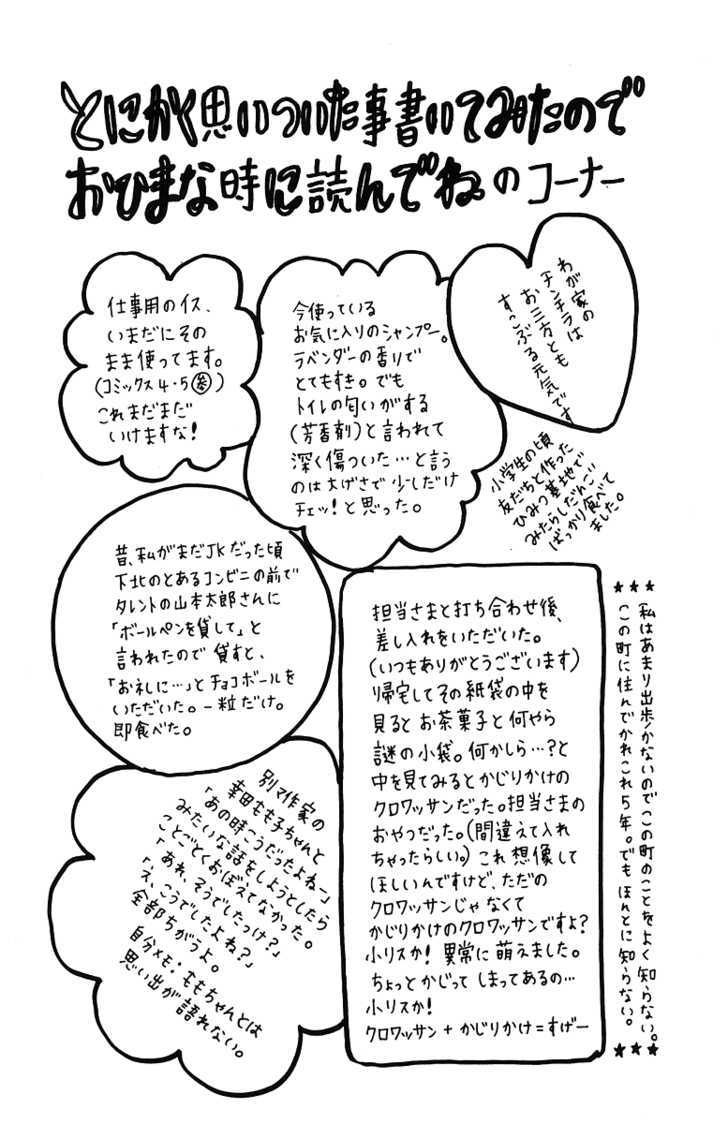 とにかく思いついた事書いてみたので
おひまな時に読んでね のコーナー
仕事用のイス、
いまだにその
まま使ってます。
(コミックス4・5巻参)
これまだまだ
いけますな!
今使っている
お気に入りのシャンプー。
ラベンダーの香りで
とてもすき。でも
トイレの匂いがする
(芳香剤)と言われて
深く傷ついた…と言う
のは大げさで少しだけ
チェッ!と思った。
わが家の
チンチラは
お三方とも
すこぶる元気です
小学生の頃
友だちと作った
ひみつ基地で
みたらしだんご
ばっかり食べて
ました。
昔、私がまだJKだった頃
下北のとあるコンビニの前で
タレントの山本太郎さんに
「ボールペンを貸して」と
言われたので貸すと、
「お礼に…」とチョコボールを
いただいた。一粒だけ。
即食べた。
担当さまと打ち合わせ後、
差し入れをいただいた。
(いつもありがとうございます)
帰宅してその紙袋の中を
見るとお茶菓子と何やら
謎の小袋。何かしら…?と
中を見てみるとかじりかけの
クロワッサンだった。担当さまの
おやつだった。(間違えて入れ
ちゃったらしい。)これ想像して
ほしいんですけど、ただの
クロワッサンじゃなくて
かじりかけのクロワッサンですよ?
小リスか!異常に萌えました。
ちょっとかじってしまってあるの…
小リスか!
クロワッサン+かじりかけ=すげー
別マ作家の
幸田もも子ちゃんと
「あの時こうだったよねー」
みたいな話をしようとしたら
ことごとくおぼえてなかった。
「あれ、そうでしたっけ?」
「え、こうでしたよね?」
全部ちがうよ。
自分メモ:ももちゃんとは
思い出が語れない。
★★★私はあまり出歩かないのでこの町のことをよく知らない。★★★
この町に住んでかれこれ5年。でもほんとに知らない。